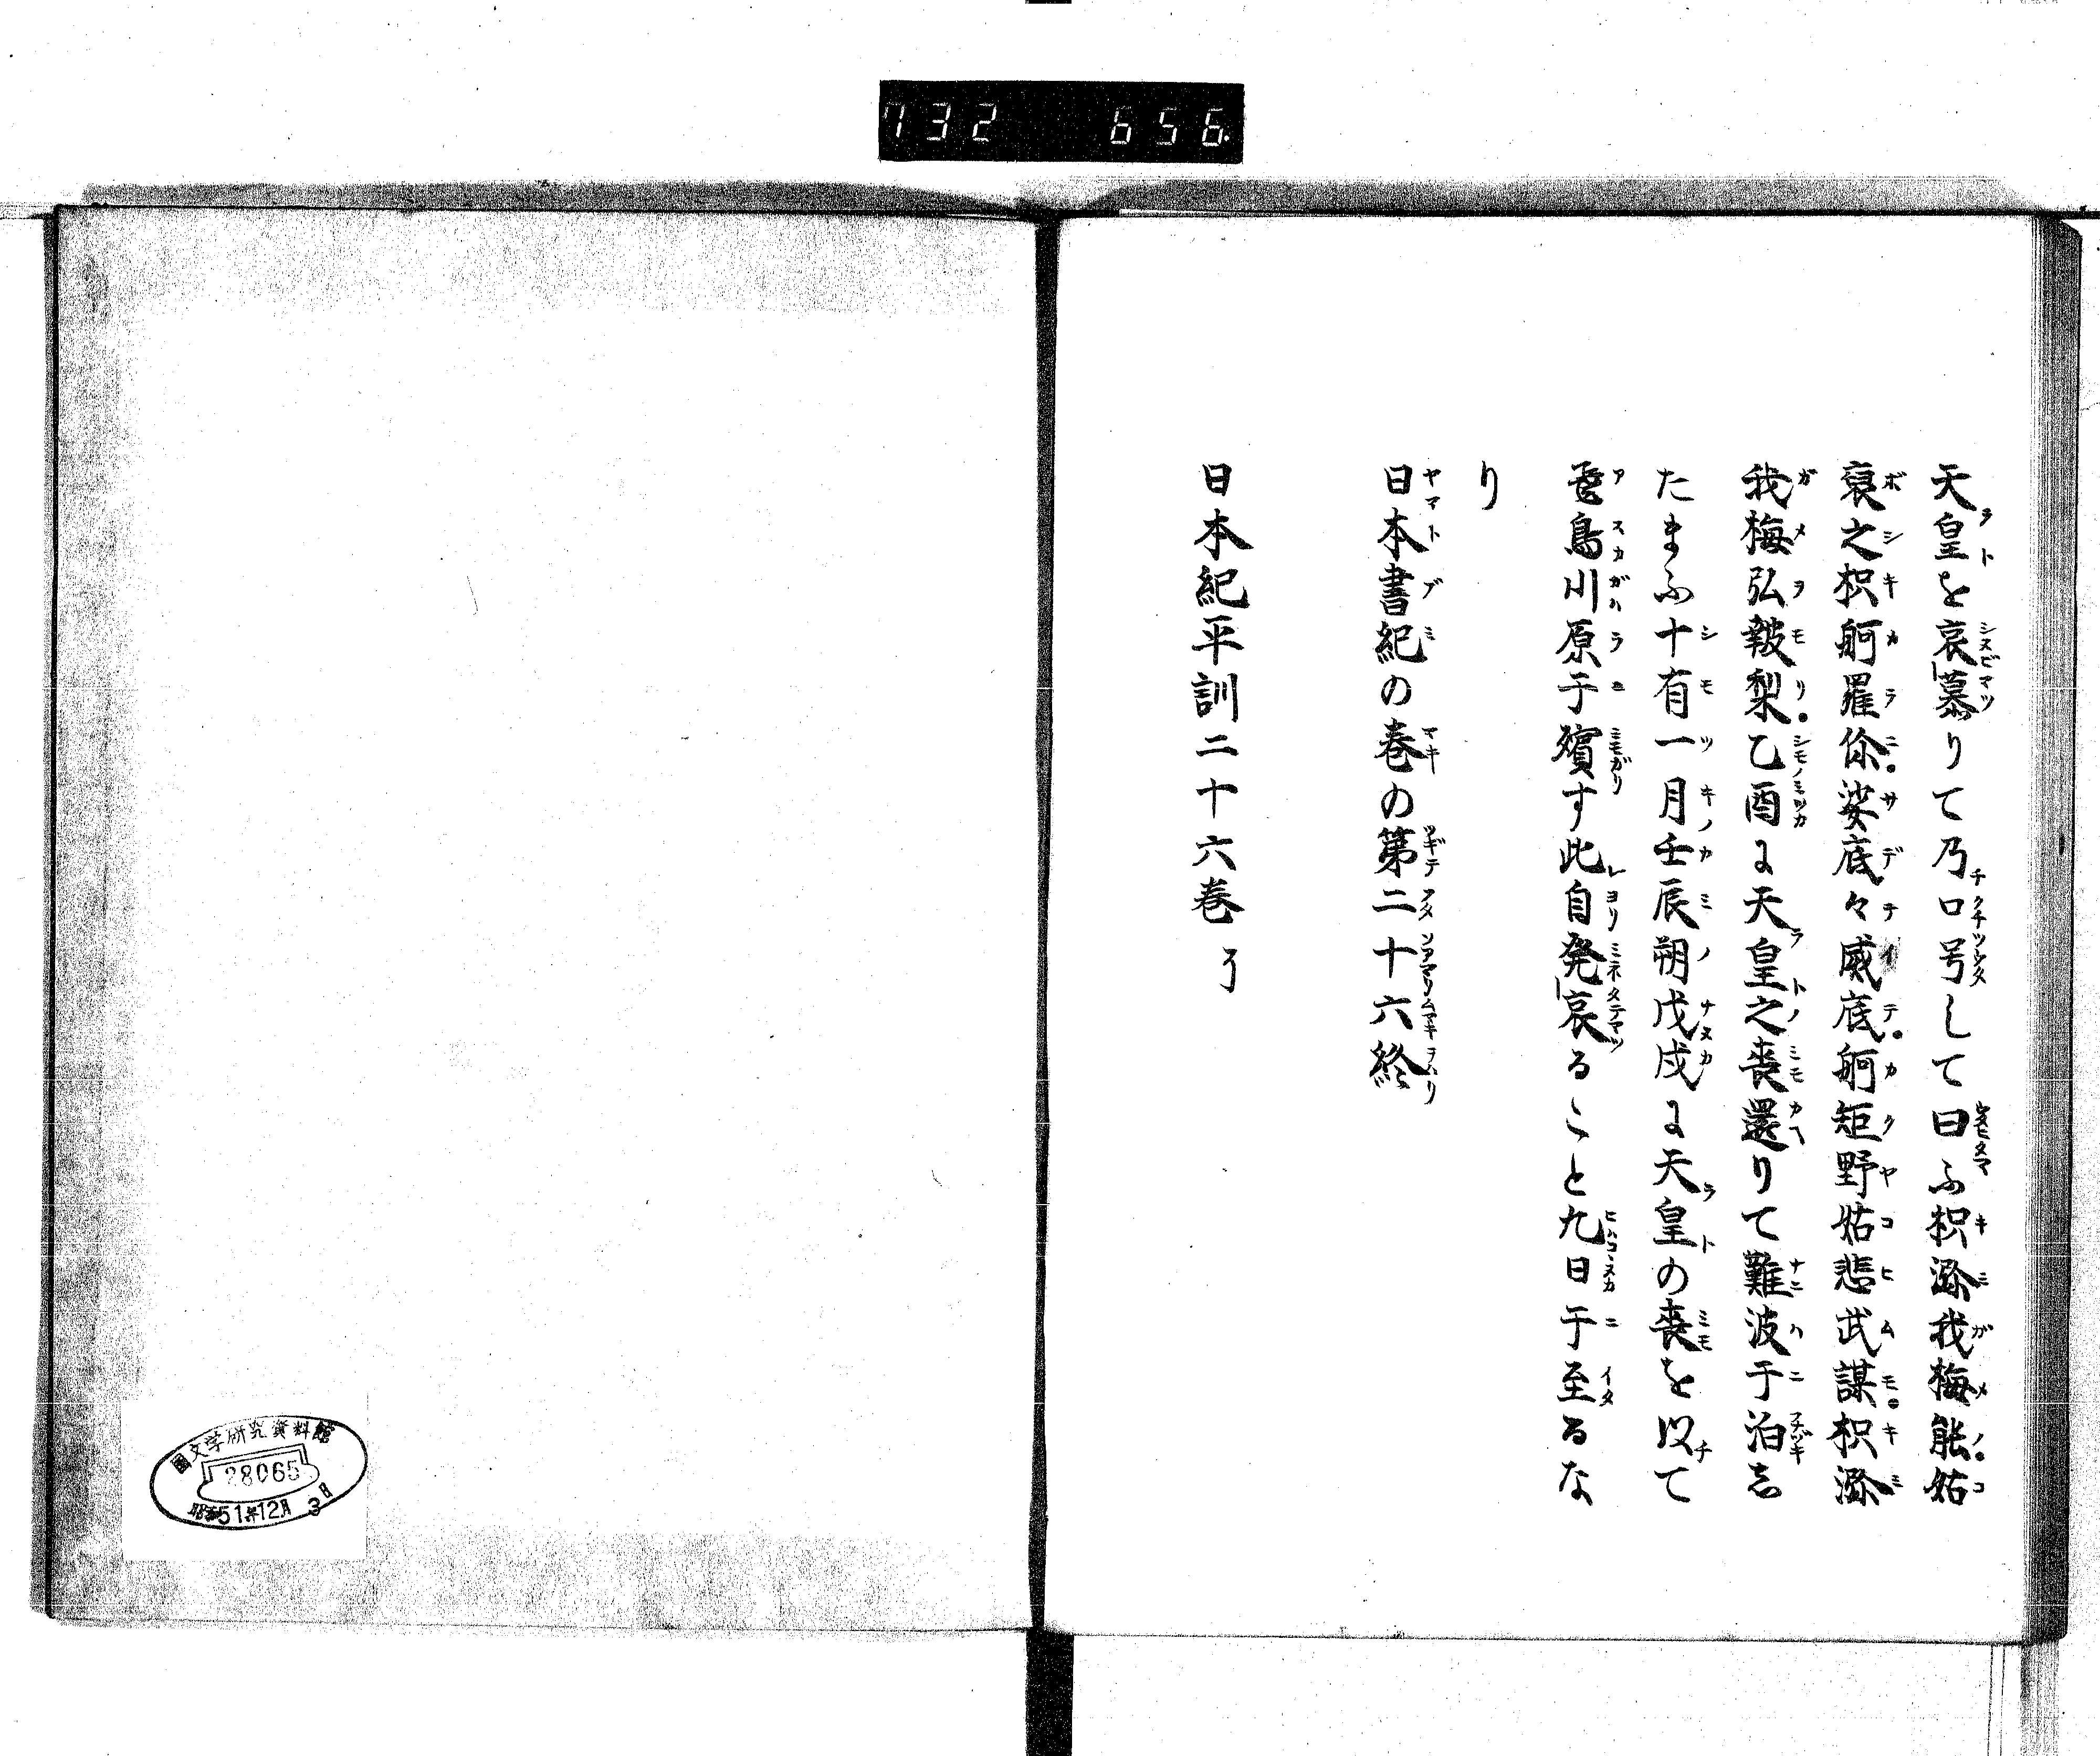 732 656
天皇を哀慕りて乃口号して曰ふ枳瀰我梅能姑
裒之枳舸羅儞婆底々威底舸矩野姑悲武謀枳瀰
我梅弘報梨乙酉に天皇之喪還りて難波于泊志
たまふ十有一月壬辰朔戊戌に天皇の喪を以て
飛鳥川原于殯す此自発哀ること九日于至るな
り
日本書紀の巻の第二十六終
日本紀平訓二十六巻 了
國文学研究資料館
28065
昭和51年12月3日